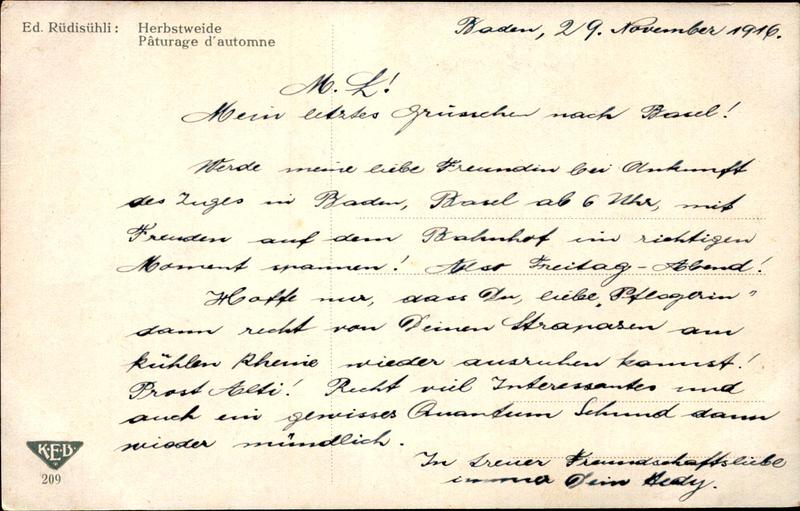 Ed. Rüdisühli: Herbstweide
Pâturage d'automne
Baden, 29. November 1916.
M. L!
Mein letztes Grüsschen nach Basel!
Werde meine liebe Freundin bei Ankunft
des Zuges in Baden, Basel ab 6 Uhr, mit
Freuden auf dem Bahnhof im richtigen
Moment spannen! Also Freitag-Abend!
Hoffe nur, dass Du, liebe „Pflegerin"
dann recht von Deinen Strapazen am
kühlen Rheine wieder ausruhen kannst!
Prost Alti! Recht viel Interessantes und
auch ein gewisses Quantum Schund dann
wieder mündlich.
In treuer Freundschaftsliebe
immer Dein Hedy.
K.E.B.
209